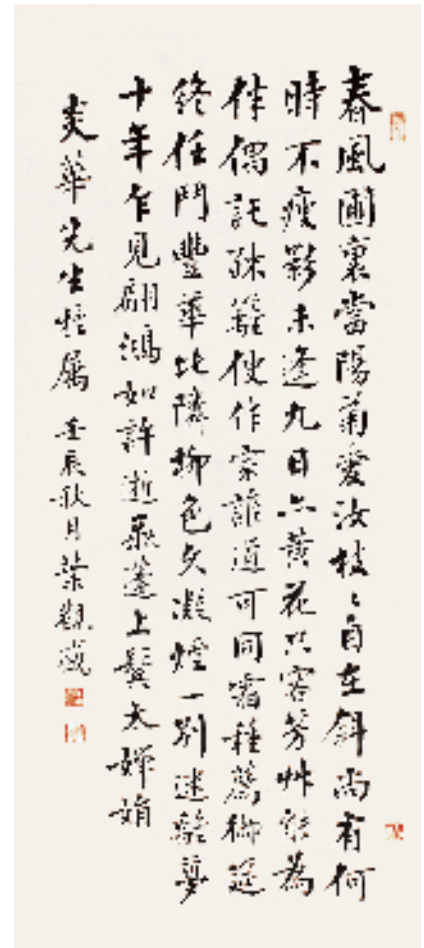 春風圃裏當陽菊愛汝枝々自在斜尚有何
時不瘦影未逢九日亦黃花只容芳艸能為
伴偶託疎籬便作家誰道可同霜種薦御筵
終任鬥豐華比隣柳色久凝煙一別迷離夢
十年乍見翩鴻如許逝飛蓬上鬢太嬋娟
炎華先生惟属 壬辰秋月葉觀盛